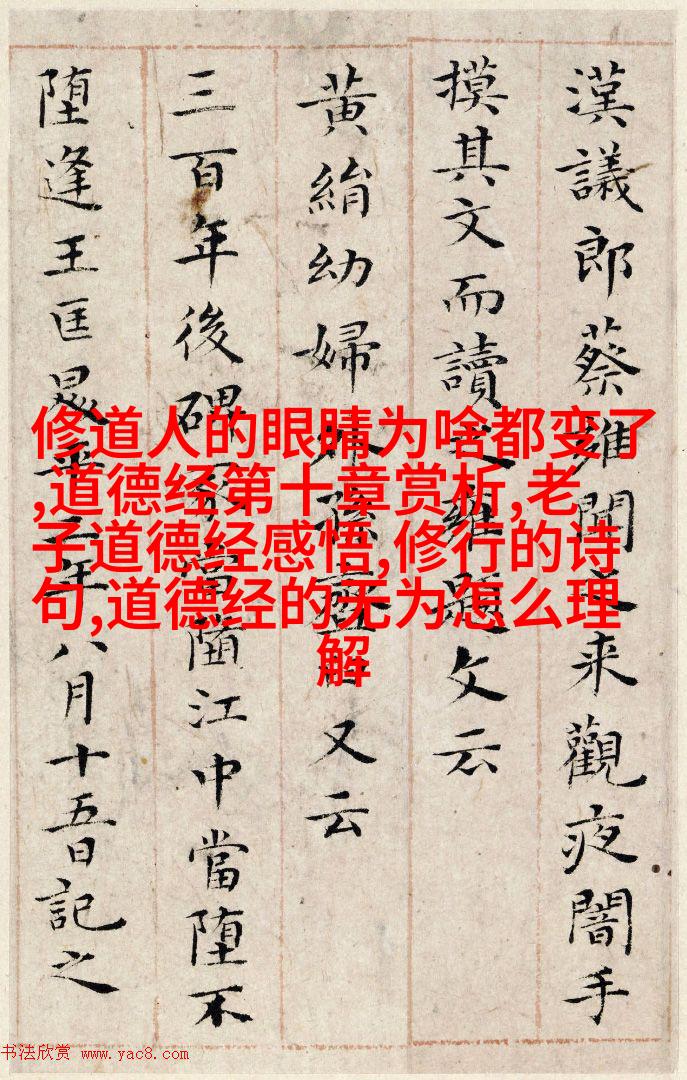 漢議郎蔡雍聞之来觀夜闇手
摸其文而讀之雍題文云
黄絹幼婦外孫又云
三百年後碑冢當堕江中當堕不
堕逢王匡昇平二年八月十五日記之
修道人的眼睛为啥都变了
,道德经第十章赏析,老
子道德经感悟,修行的诗
句,道德经的无为怎么理
解
书法欣赏 www.yac8.com